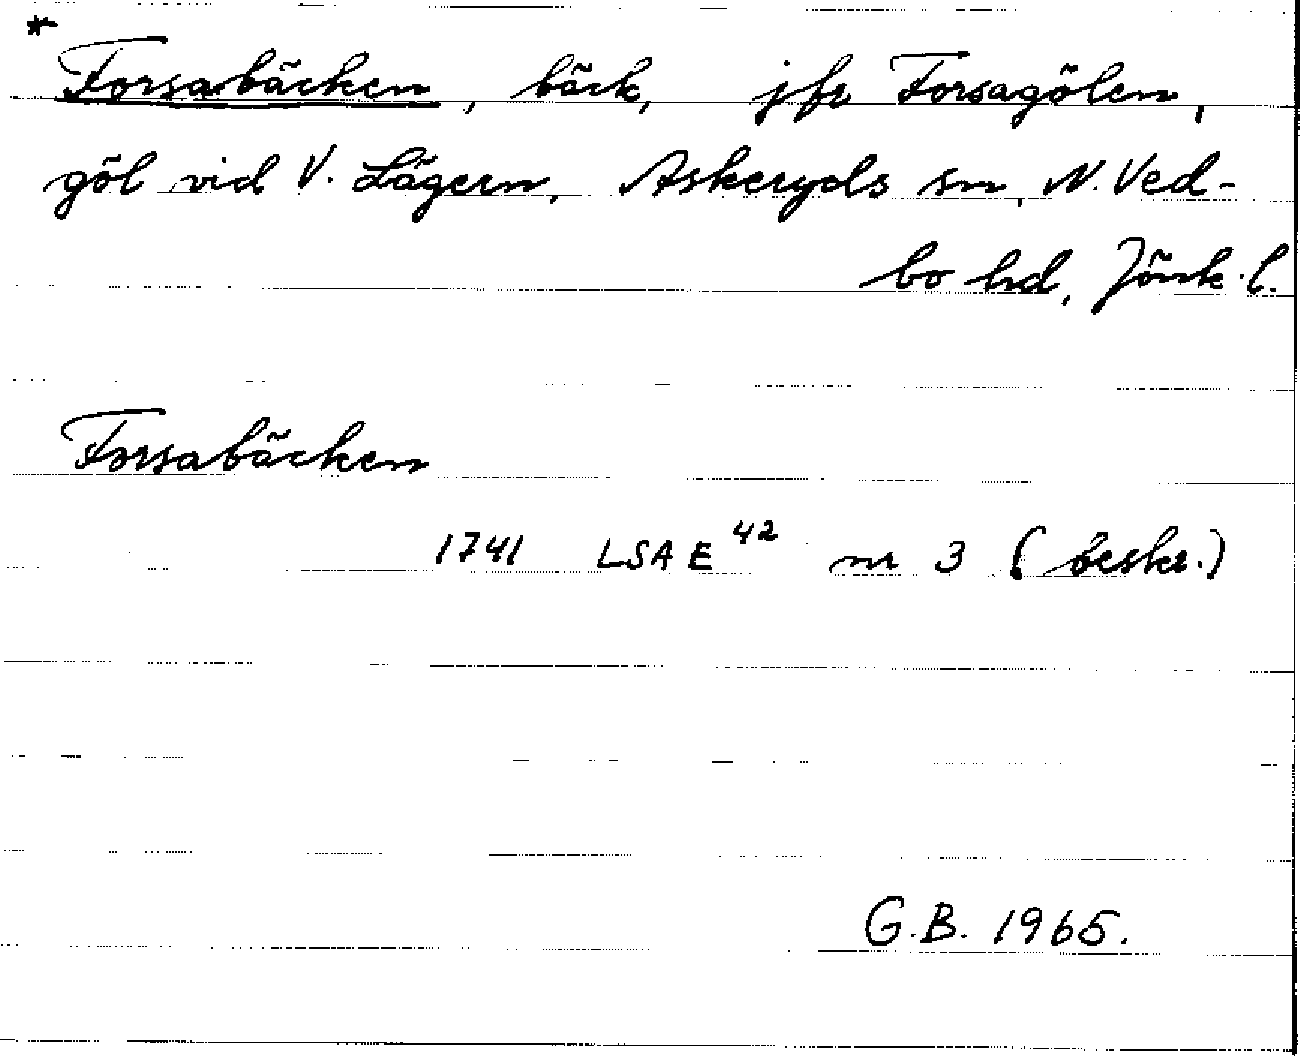 *
Forsabäcken, bäck, jfr Forsagölen,
göl vid V. Lägern, Askeryds sn, N. Ved-
bo hd, Jönk. l.
Forsabäcken
1741 LSA E 42 nr 3 (beskr.)
G.B. 1965.